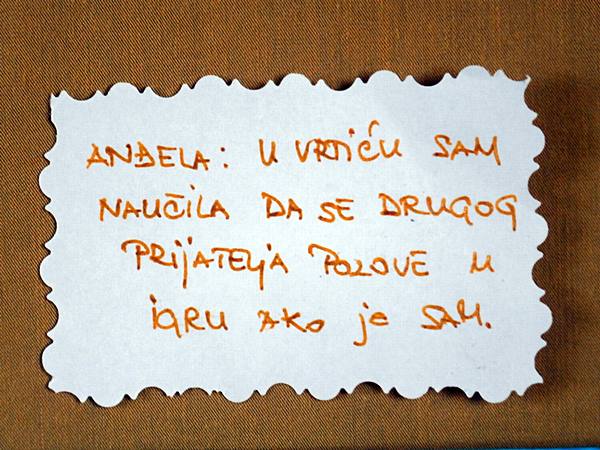 ANĐELA: U VRTIĆU SAM
NAUČILA DA SE DRUGOG
PRIJATELJA POZOVE U
IGRU AKO je SAM.